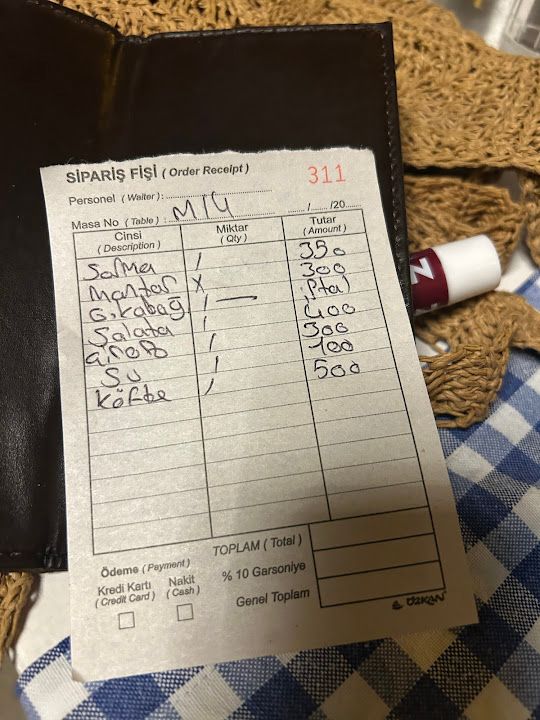 SİPARİŞ FİŞİ ( Order Receipt )
311
Personel ( Waiter ) :
Masa No ( Table ) : M14 ....../....../20......
Cinsi Miktar Tutar
( Description ) ( Qty ) ( Amount )
Sarma / 350
Mantar X 300
G.kabağ / — iptal
Salata / 400
/ 300
Su / 100
Köfte / 500
TOPLAM ( Total )
Ödeme ( Payment )
% 10 Garsoniye
Kredi Kartı Nakit
( Credit Card ) ( Cash )
Genel Toplam
ÖZKAN